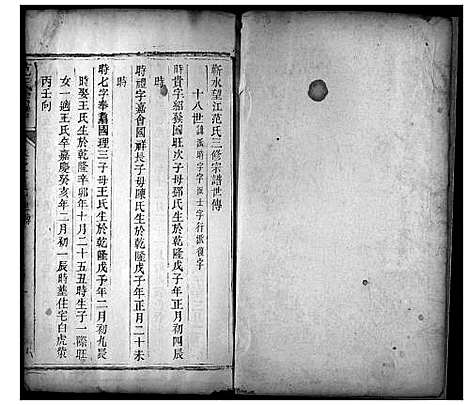 蘄水望江范氏三修宗譜世傳
十八世 諱派時字 字派士字 行派俊字
時貴字紹發國旺次子母鄧氏生於乾隆戊子年正月初四辰
時
時禮字嘉會國祥長子母陳氏生於乾隆戊子年正月二十未
時
時七字奉嘉國理三子母王氏生於乾隆戊子年二月初九辰
時娶王氏生於乾隆辛卯年十月二十五丑時生子一際旺
女一適王氏卒嘉慶癸亥年二月初一辰時墓住宅白虎嘴
丙壬向